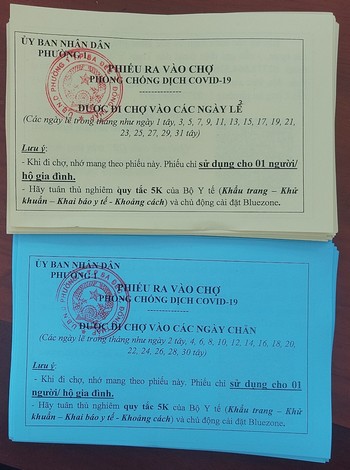 ỦY BAN NHÂN DÂN
PHƯỜNG 1
PHIẾU RA VÀO CHỢ
PHÒNG CHỐNG DỊCH COVID-19
ĐƯỢC ĐI CHỢ VÀO CÁC NGÀY LẺ
(Các ngày lẻ trong tháng như ngày 1 tây, 3, 5, 7, 9, 11, 13, 15, 17, 19, 21,
23, 25, 27, 29, 31 tây)
Lưu ý:
- Khi đi chợ, nhớ mang theo phiếu này. Phiếu chỉ sử dụng cho 01 người/
hộ gia đình.
- Hãy tuân thủ nghiêm quy tắc 5K của Bộ Y tế (Khẩu trang – Khử
khuẩn – Khai báo y tế - Khoảng cách) và chủ động cài đặt Bluezone.
ỦY BAN NHÂN DÂN
PHƯỜNG 1
PHIẾU RA VÀO CHỢ
PHÒNG CHỐNG DỊCH COVID-19
ĐƯỢC ĐI CHỢ VÀO CÁC NGÀY CHẴN
(Các ngày lẻ trong tháng như ngày 2 tây, 4, 6, 8, 10, 12, 14, 16, 18, 20,
22, 24, 26, 28, 30 tây)
Lưu ý:
- Khi đi chợ, nhớ mang theo phiếu này. Phiếu chỉ sử dụng cho 01
người/ hộ gia đình.
- Hãy tuân thủ nghiêm quy tắc 5K của Bộ Y tế (Khẩu trang – Khử
khuẩn – Khai báo y tế - Khoảng cách) và chủ động cài đặt Bluezone.